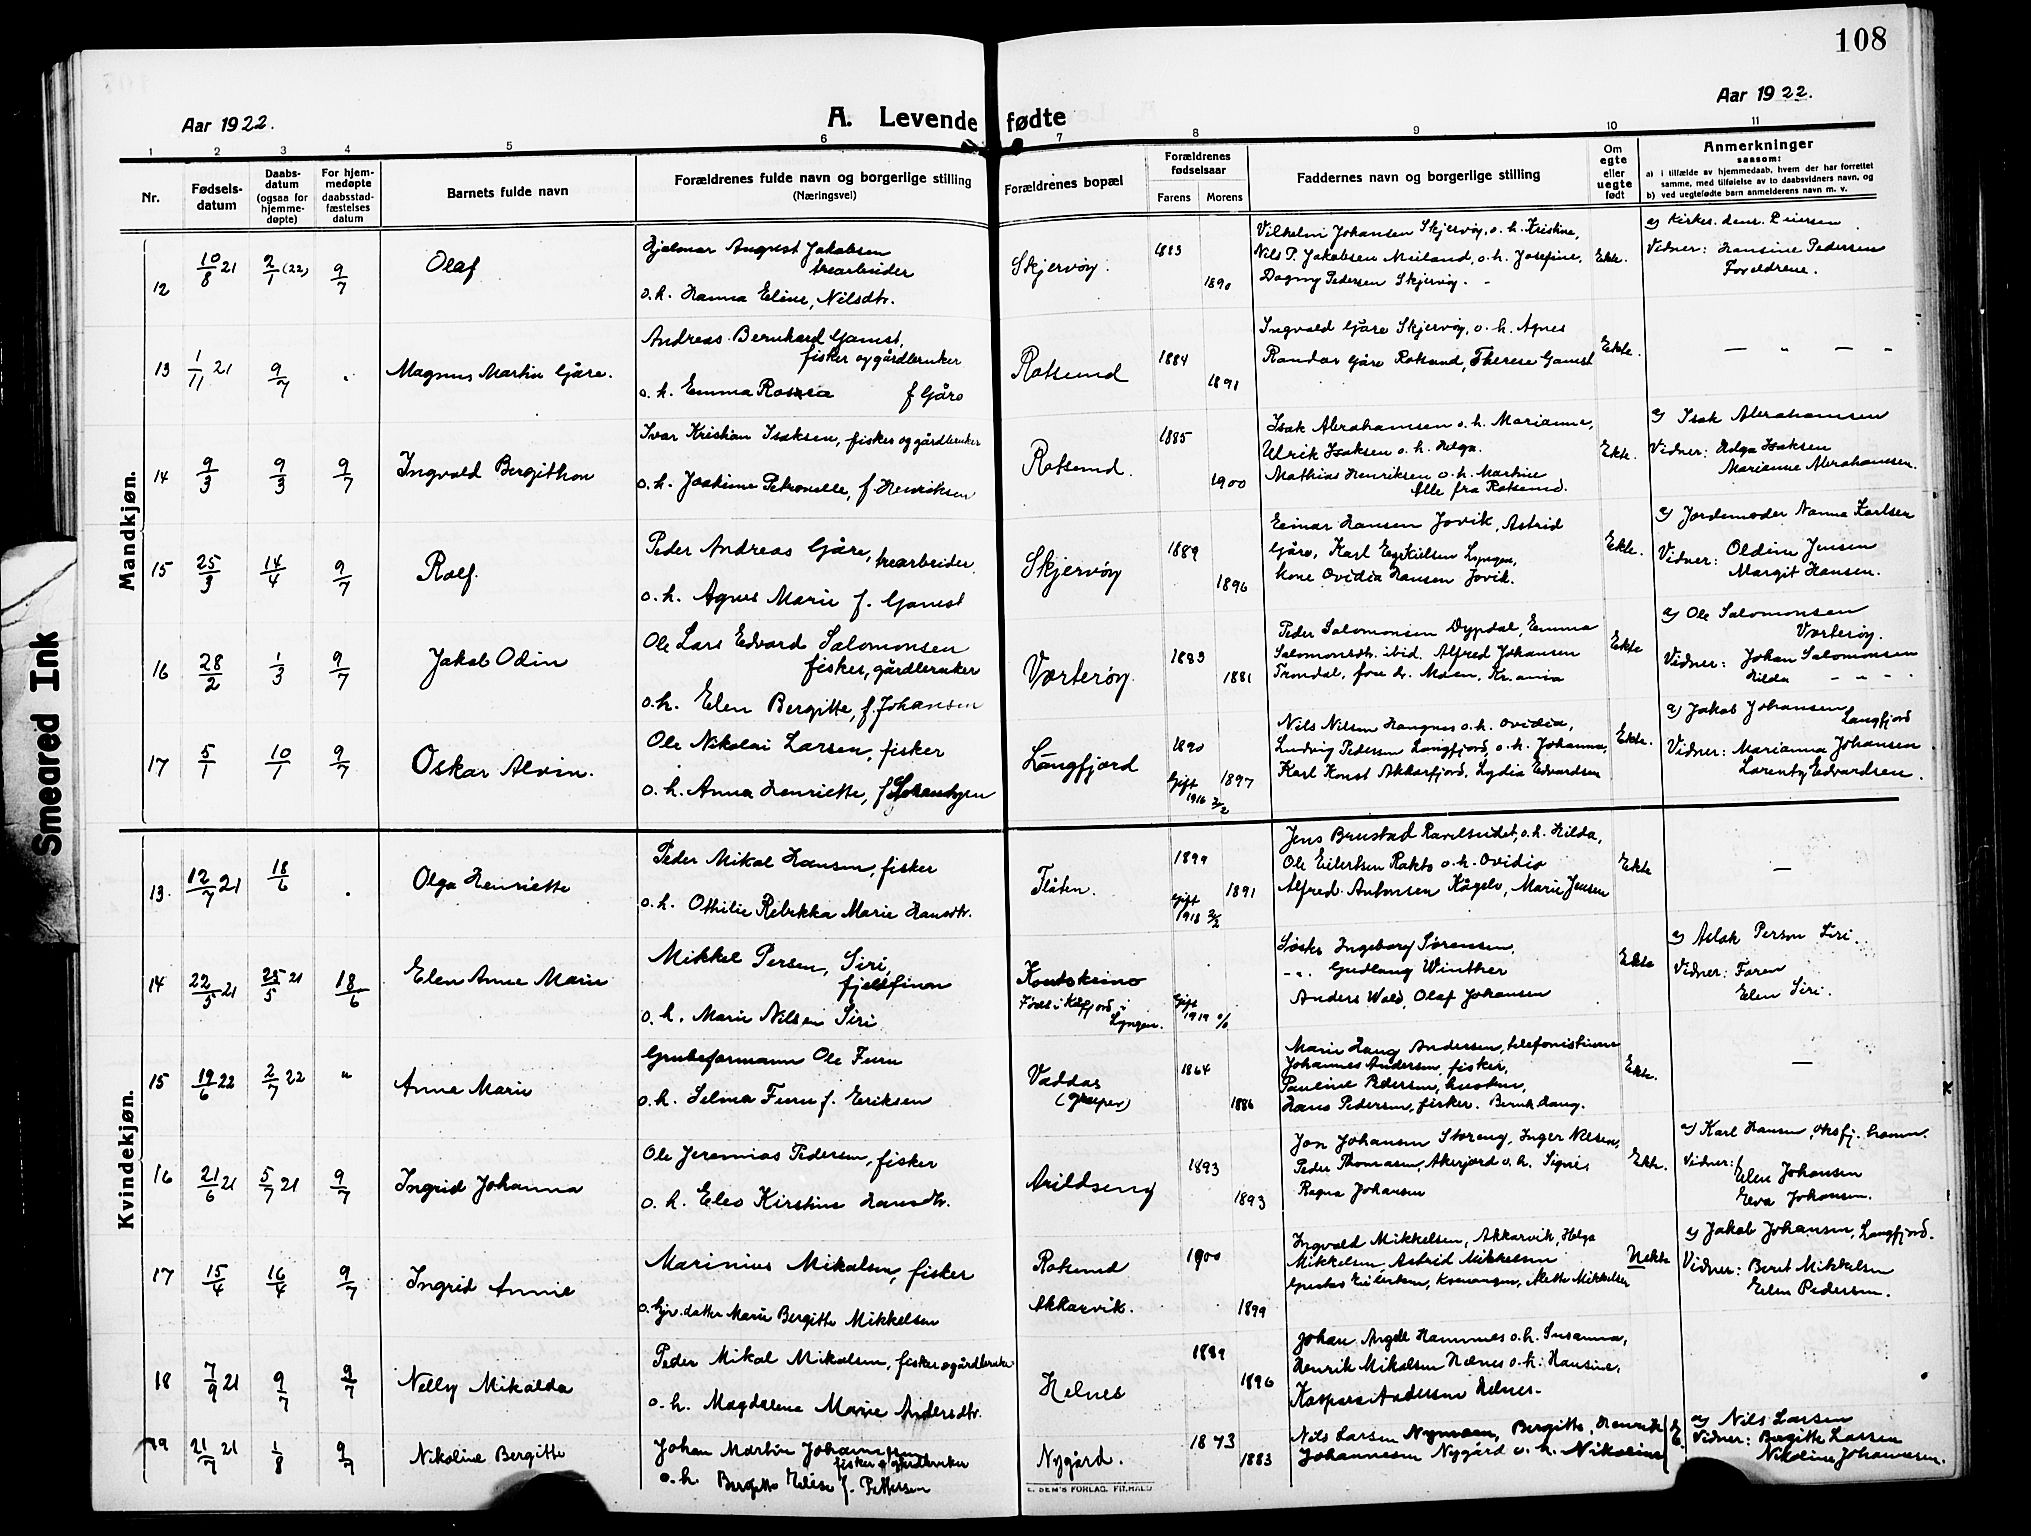 108
Aar 1922.
A. Levende fødte
Aar 1922.
1 2 3 4 5 6 7 8 9 10 11
Nr.
Fødsels-datum
Daabs-datum (ogsaa for hjemme-døpte)
For hjem-medøpte daabsstad-fæstelses datum
Barnets fulde navn
Forældrenes fulde navn og borgerlige stilling
(Næringsvei)
Forældrenes bopæl
Forældrenes fødselsaar
Farens Morens
Faddernes navn og borgerlige stilling
Om egte eller uegte født
Anmerkninger
saasom:
a) i tilfælde av hjemmedaab, hvem der har forrettet samme, med tilføielse av to daabsvidners navn, og
b) ved uegtefødte barn anmelderens navn m. v.
Mandkjøn.
12 10/8 21 2/1 (22) 9/7 Olaf
Hjalmar August Jakobsen
trearbeider
o. h. Hanna Eline, Nilsdtr.
Skjervøy. 1883 1890
Vilhelm Johansen Skjervøy, o. h. Kristine,
Nils P. Jakobsen Meiland, o. h. Josefine,
Dagny Pedersen Skjervøy. -
Ekte.
a) Kirkes. dens.
Vidner: Hansine Pedersen
Foreldrene.
13 1/11 21 9/7 Magnus Martin Gåre.
Andreas Bernhard Gamst,
fisker og gårdbruker
o. h. Emma f Gåre
Rotsund 1884 1891
Ingvald Gåre Skjervøy, o. h. Agnes
Randar Gåre Rotsund, Therese Gamst
Ekte.
14 9/3 9/3 9/7 Ingvald Bergithon
Ivar Kristian Isaksen, fisker og gårdbruker
o. h. Joakime Petronelle, f. Henriksen
Rotsund. 1885 1900
Isak Abrahamsen o. h. Marianne,
Ulrik Isaksen o. h. Helga.
Mathias Henriksen o. h. Martine
Alle fra Rotsund.
Ekte.
a) Isak Abrahamsen
Vidner: Helga Isaksen
Marianne Abrahamsen.
15 25/3 14/4 9/7 Rolf.
Peder Andreas Gåre, trearbeider.
o. h. Agnes Marie f. Gamst
Skjervøy 1889 1896
Einar Hansen Jovik, Astrid
Gåre, Karl Esekielsen Lyngen,
kone Ovidia Hansen Jovik.
Ekte.
a) Jordemoder Nanna Karlsen
Vidner: Oldine Jensen
Margit Hansen.
16 28/2 1/3 9/7 Jakob Odin
Ole Lars Edvard Salomonsen
fisker, gårdbruker
o. h. Elen Bergitte, f. Johansen
Vorterøy. 1883 1881
Peder Salomonsen Dypdal, Emma
Salomonsdtr. ibid. Alfred Johansen
Trondal, frue dr. Moen, Kr.ania
Ekte
a) Ole Salomonsen
Vorterøy.
Vidner: Johan Salomonsen
Hilda - - - -
17 5/1 10/1 9/7 Oskar Alvin.
Ole Nikolai Larsen, fisker
o. h. Anna Henriette, f.
Langfjord 1890 1897
Gift 1916
Nils Nilsen Hangnes o. h. Ovidia,
Ludvig Pedersen Langfjord, o. h. Johanna,
Karl Konst Akkarfjord, Lydia Edvardsen
Ekte.
a) Jakob Johansen Langfjord
Vidner: Marianna Johansen
Lorents Edvardsen.
Kvindekjøn.
13. 12/7 21 18/6 Olga Henriette
Peder Mikal Hansen, fisker
o. h. Othilie Rebekka Marie Hansdtr.
Flåten. 1899 1891
Gift 1918
Jens Brustad Ravelseidet, o. h. Hilda,
Ole Eilertsen Rakto o. h. Ovidia
Alfred Antonsen Kågelv, Marie Jensen
Ekte
14 22/5 21 25/5 21 18/6 Elen Anne Marie
Mikkel Persen, Siri,
fjellfinn
o. h. Marie Nilsen Siri
Kautokeino
Født i Kåfjord i
Lyngen.
Gift 1919
Søster Ingeborg Sørensen,
-"- Gudlaug Winther
Anders Wold, Olaf Johansen
Ekte
a) Aslak Person Siri.
Vidner: Faren
Elen Siri.
15 19/6 22 2/7 22 " Anne Marie
Grubeformann Ole Furu
o. h. Selma Furu f. Eriksen
Vaddas
(gruper) 1864 1886
Marie Haug Andersen, telefonistinne
Johannes Andersen, fisker,
Pauline Pedersen, hustru,
Hans Pedersen, fisker. Bernh. Haug.
Ekte.
16 21/6 21 5/7 21 9/7 Ingrid Johanna
Ole Jeremias Pedersen, fisker
o. h. Eleo Kirstine Hansdtr.
Arildseng 1893 1893
Jon Johansen Storeng, Inger Nilsen,
Peder Thomasen, Akerjord o. h. Signe,
Ragna Johansen
Ekte.
a) Karl Hansen, Oksfj. hamn.
Vidner: Elen Johansen
Eva Johansen.
17 15/4 16/4 9/7 Ingrid Annie
Marinius Mikalsen, fisker
o. Gjv. datter Marie Bergitte Mikkelsen
Rotsund
Akkarvik. 1900 1899
Ingvald Mikkelsen, Akkarvik, Helga
Mikkelsen, Astrid Mikkelsen
Gustav Eilertsen, Kvænangen, Mette Mikkelsen
Uekte
a) Jakob Johansen, Langfjord.
Vidner: Beret Mikkelsen
Elen Pedersen.
18 7/9 21 9/7 9/7 Nelly Mikalda
Peder Mikal Mikalsen, fisker og gårdbruker
o. h. Magdalena Marie Andersdtr.
Helnes 1889 1896
Johan Angell Hamnes o. h. Susanna,
Henrik Mikalsen Helnes o. h. Hansine,
Kaspara Andersen Helnes.
19 21/7 21 1/8 9/7 Nikoline Bergitte
Johan Martin Johannessen
fisker gårdbruker
o. h. Bergitte Elise f. Pettersen
Nygård. 1873 1883
Nils Larsen Nymoen, Bergitte, Henrik
Johannesen Nygård o. h. Nikoline
E.
a) Nils Larsen
Vidner: Bergitte Larsen
Nikoline Johannesen.
E. SEM'S FORLAG, FR.HALD
Smeared Ink